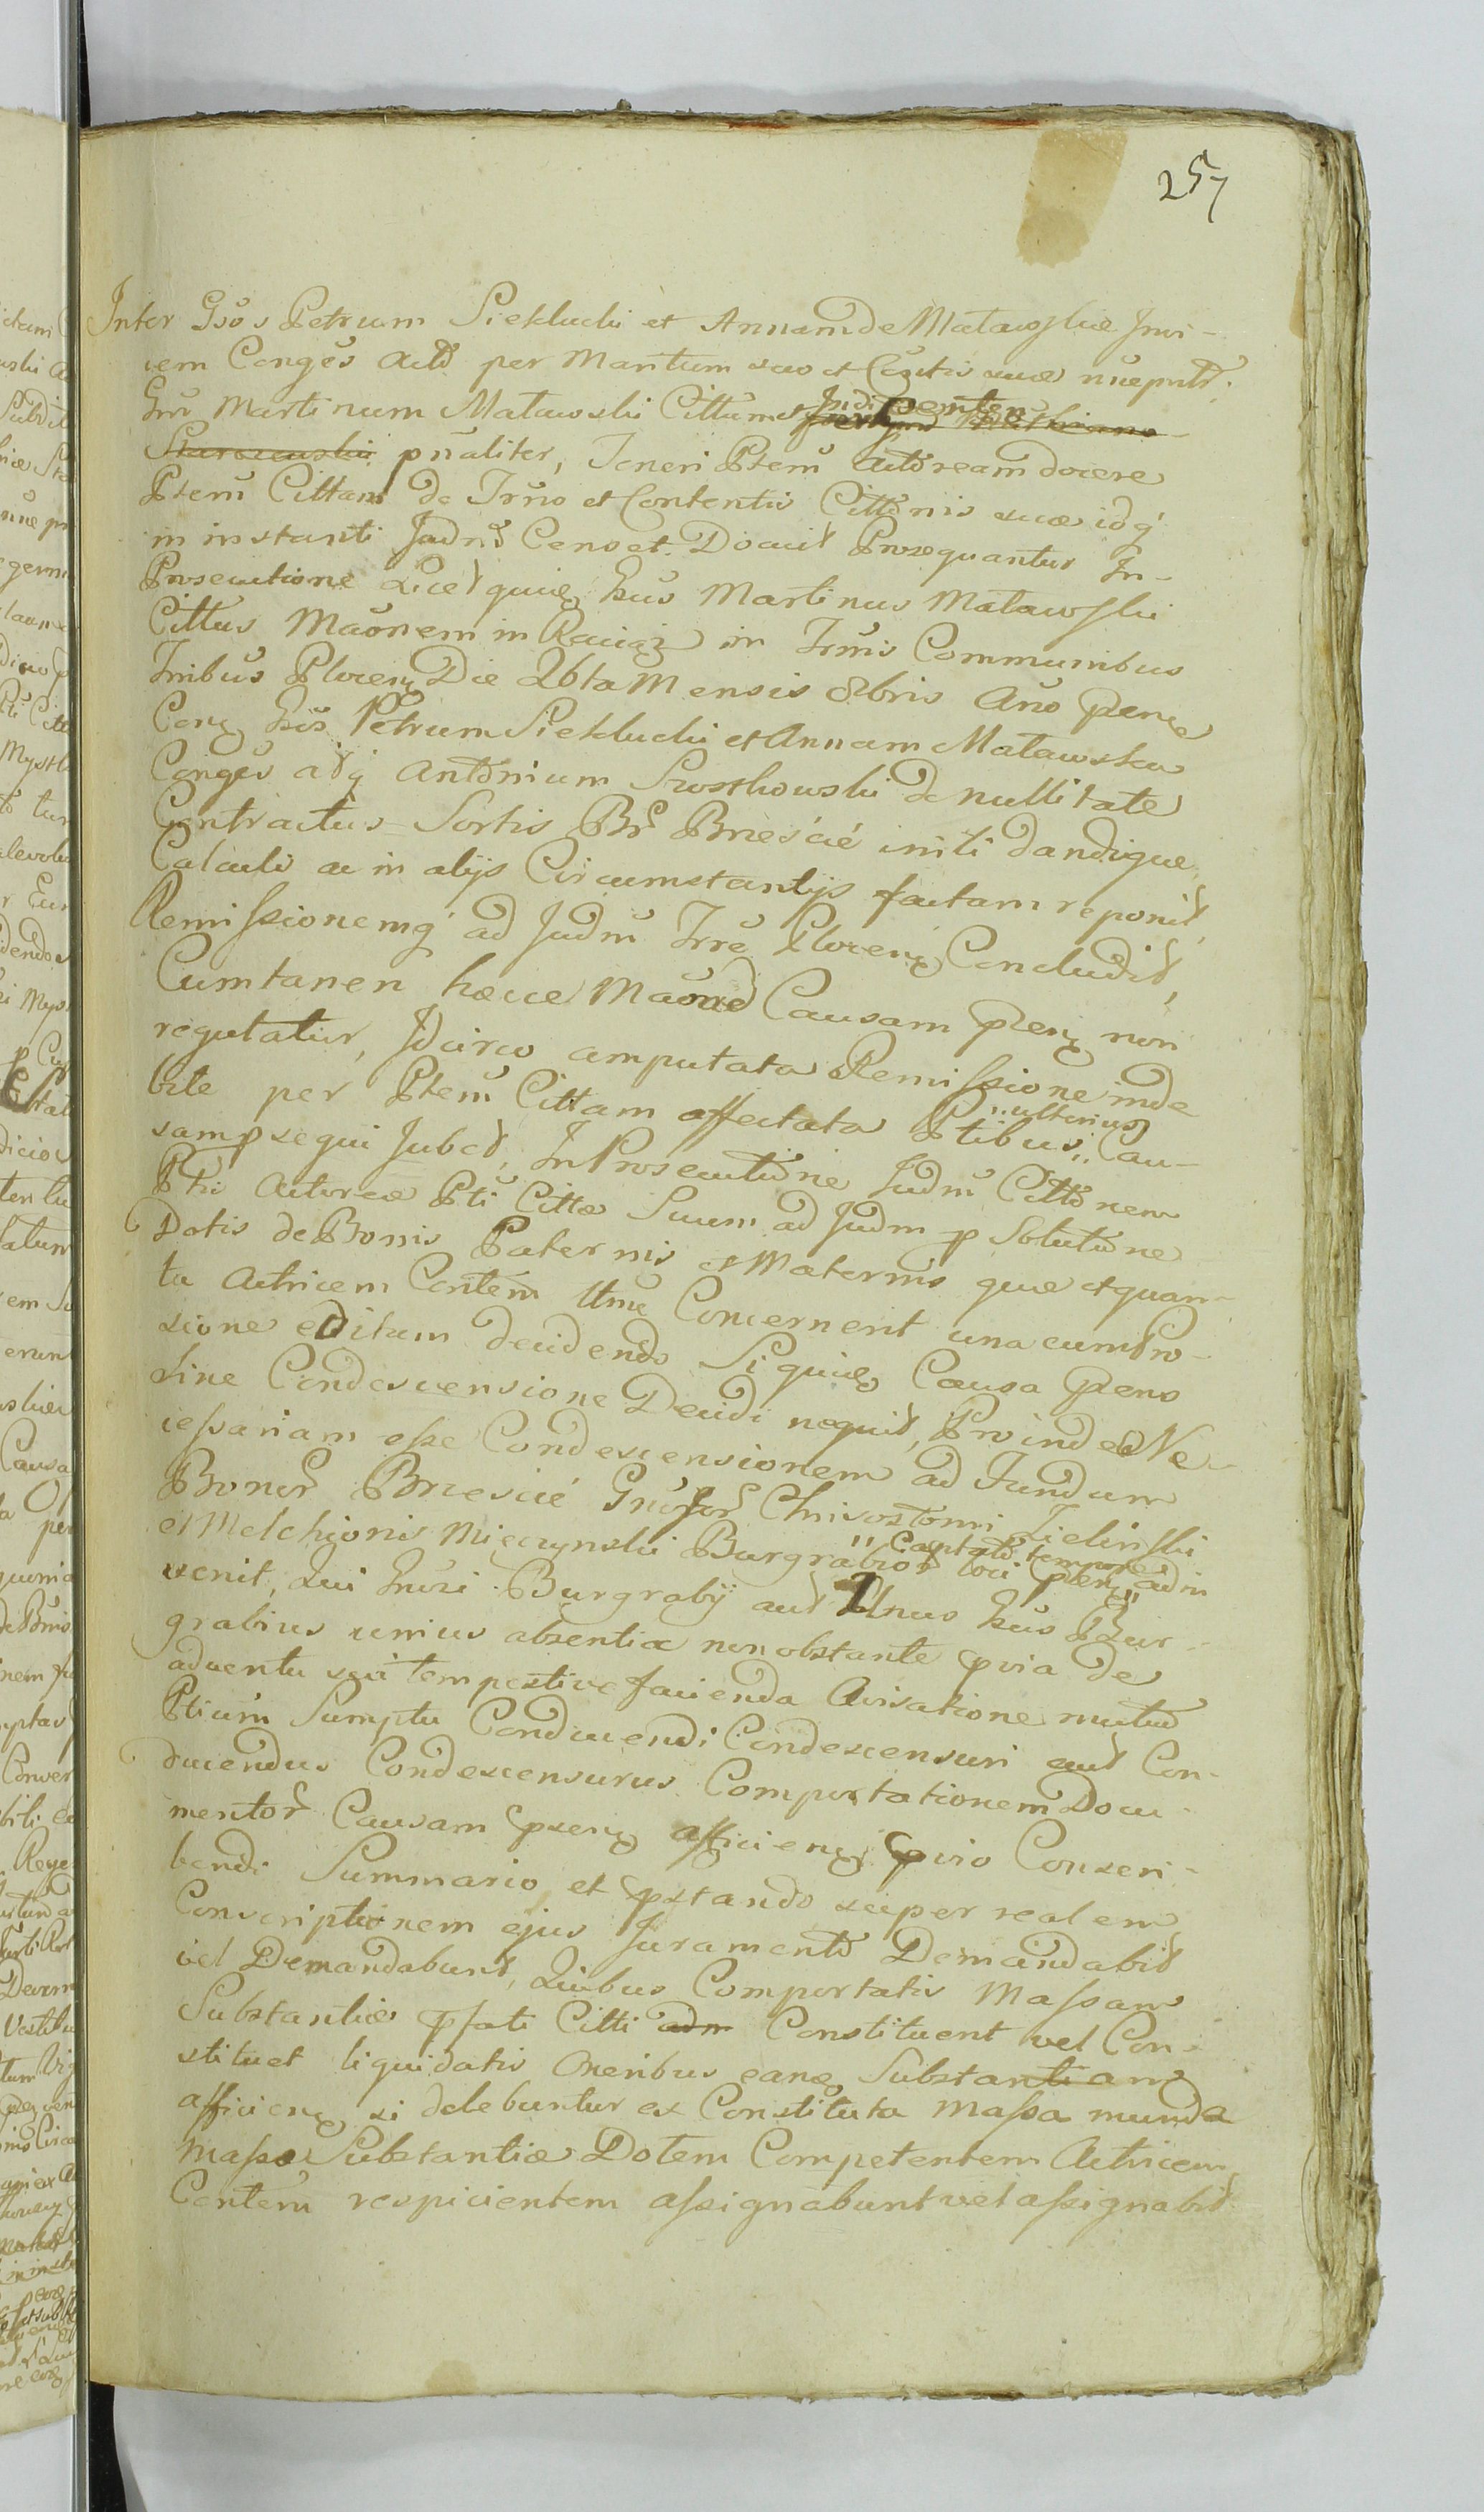 257
Inter Gsos Petrum Siekłucki et Annam de Matawskie Invi-
cem Conges Actō per Maritum suo et Csortis suæ nūe pntt.
Gm Martinum Matawski Cittum et Judi Semten
Skarszewski pnaliter, Teneri Ptem Actoream docere
Ptem Cittam de Trno et Contentis Cittōnis suæ idq
in instanti Judm Censet. Docuit Prosequantur In-
Prosecutione Licet quieq Gsus Martinus Matawski
Cittus Maōnem in Raciąż in Trmis Communibus
Trribus Plocen Die 26ta Mensis 8bris Año præn
Conq Gsos Petrum Siekłucki et Annam Matawska
Conges atq Antōnium Smosthowski de nullitate
Contractus Sortis Br Brzeście initi dandique
Calculi ac in alijs Circumstantijs factam reponit,
Remissionemq ad Judm Trre Plocen Concludit,
Cumtamen hæcce Maōne Causam præn non
regulatur, Idcirco amputata Remissione inde
bite per Ptem Cittam affectata Ptibus ulterius Cau-
sam psequi Jubet, In Prosecutione Judm Cittōnem
Ptis Actoreæ Pti Cittæ Suum ad Judm p Solutione
Dotis de Bonis Paternis et Maternis quæ et quan-
ta Actricem Contem Ltme Concernent una cum Pro-
sione editam decidendo Siquid Causa præns
Sine Condescensione Decidi nequit, Proinde Ne-
cessariam esse Condescensionem ad Fundum
Bonor Brzeście Gnosor Chrisostomi Zielinski
et Melchioris Mięczynski Burgrabior Captato tempore loci præn adin
venit, Qui Gnosi Burgrabij aut Unus Gsus Bur-
grabius unius absentia non obstante pvia de
adventu sui tempestive facienda Avisatione mutuo
Ptium Sumptu Conducendi Condescensuri aut Con-
ducendus Condescensurus Comportationem Docu-
mentor Causam præn afficien pvio Conscri-
bendi Summario et pstando super realem
Conscriptionem ejus Juramento Demandabit
vel Demandabunt, Quibus Comportatis Massam
Substantiæ pfati Citti adm Constituent vel Con-
stituet liquidatis Oneribus eanq Substantiam
afficien si delebuntur ex Constituta Massa munda
Massæ Substantiæ Dotem Competentem Actricem
Contem respicientem assignabunt vel assignabit